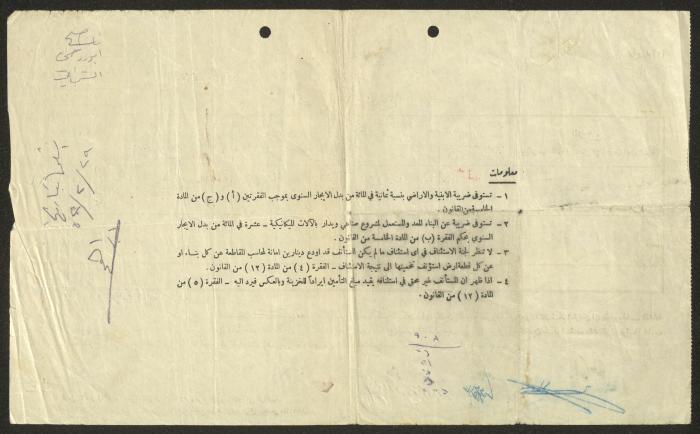 معلومات
١ - تستوفى ضريبة الابنية والاراضي بنسبة ثمانية في المائة من بدل الايجار السنوى بموجب الفقرتين ( أ ) و ( ج ) من المادة
الخامسة من القانون .
٢ - تستوفى ضريبة عن البناء المعد والمستعمل لمشروع صناعي ويدار بالآلات الميكانيكية - عشرة في المائة من بدل الايجار
السنوي بحكم الفقرة ( ب ) من المادة الخامسة من القانون .
٣ - لا تنظر لجنة الاستئناف في اى استئناف ما لم يكن المستأنف قد اودع دينارين امانة لمحاسب المقاطعة عن كل بنساء او
عن كل قطعة ارض استؤنف تخمينها الى نتيجة الاستئناف - الفقرة ( ٤ ) من المادة ( ١٢ ) من القانون .
٤ - اذا ظهر ان المستأنف غير محق في استئنافه يقيد مبلغ التأمين ايراداً للخزينة وبالعكس فيرد اليه - الفقرة ( ٥ ) من
المادة ( ١٢ ) من القانون .